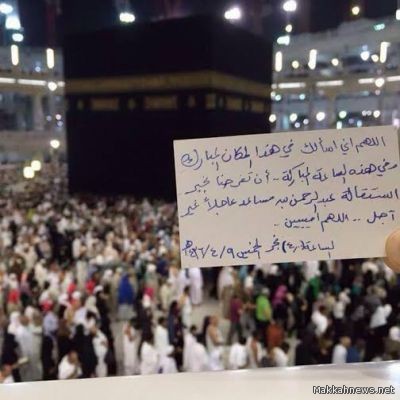 اللهم اني اسألك في هذا المكان المبارك
وفي هذه الساعة المباركة .. أن تفرحنا بخبر
استقالة عبدالرحمن بن مساعد عاجلاً غير
آجل .. اللهم آمييين ..
الساعة (٤) فجر الخميس ١٤٣٦/٤/٩هـ
Makkahnews.net